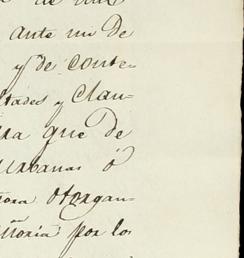 ante mi de
y de conte-
ltades y Clau-
ra que de
urbanas ó
tora otorgan-
moria por los